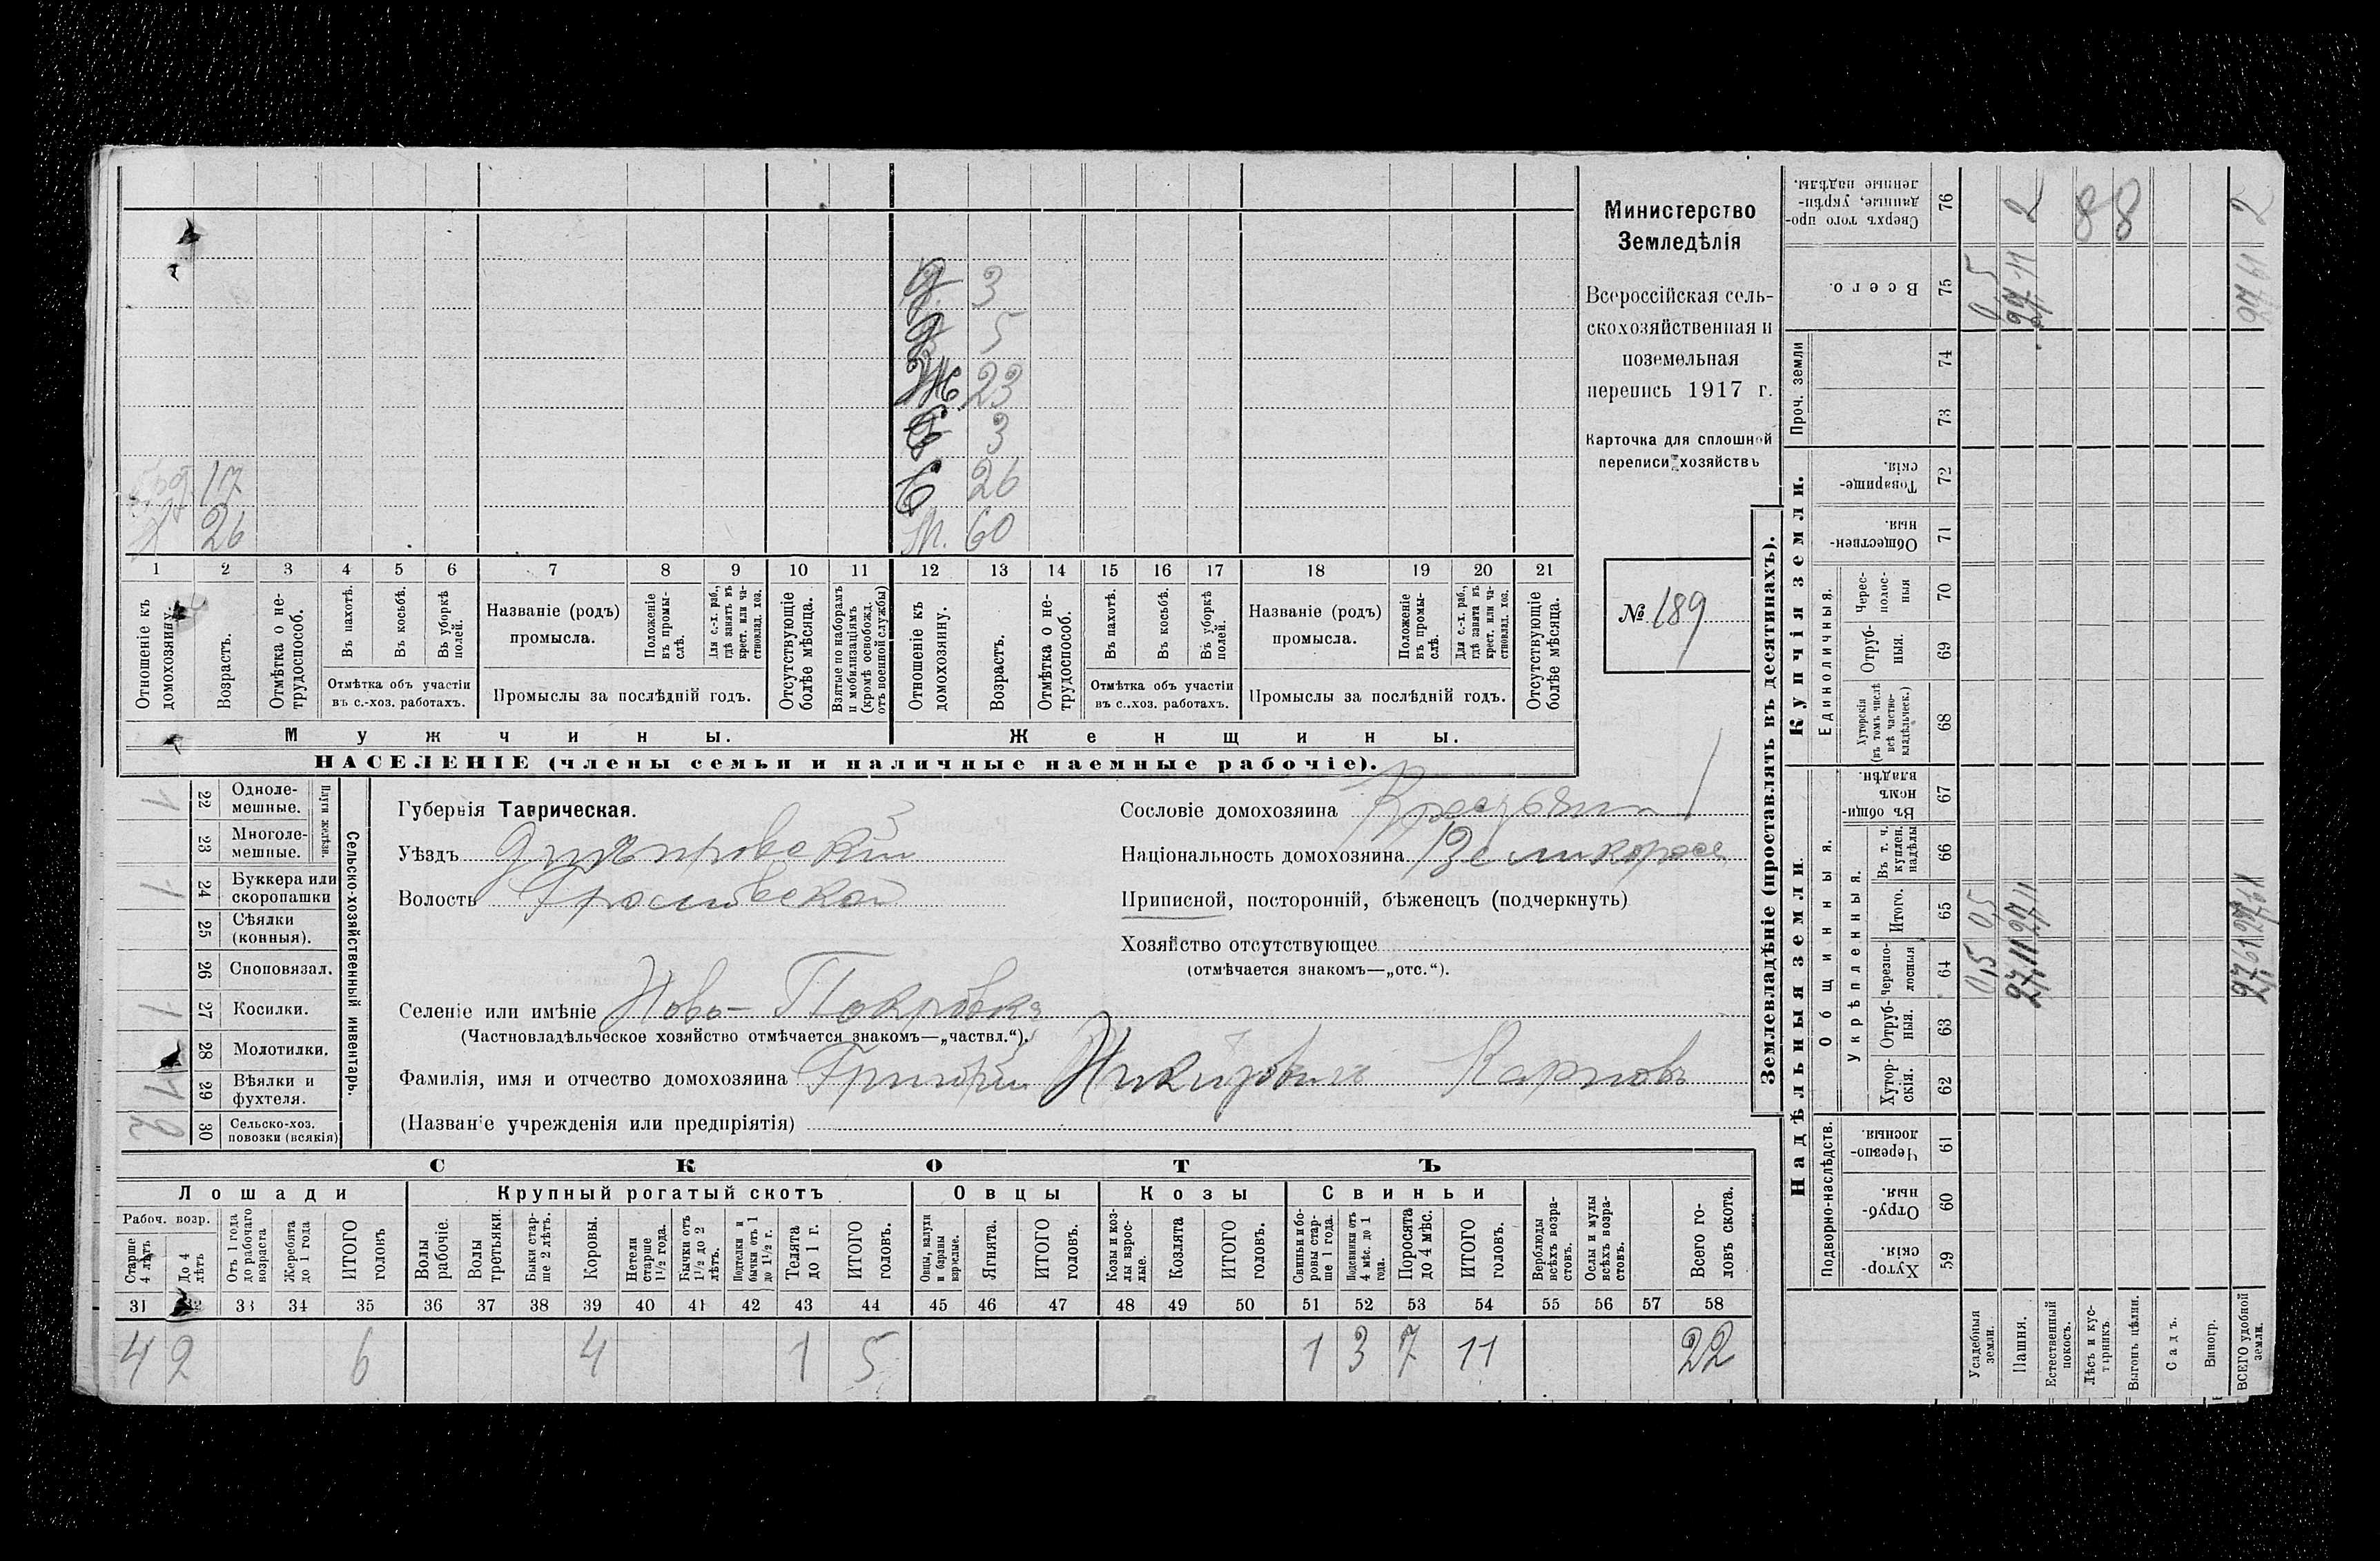 Министерство
Земледѣлія
Всероссійская сель-
скохозяйственная и
поземельная
перепись 1917 г.
Карточка для сплошной
переписи хозяйствъ
№ 189
3
5
Ж. 23
3
17 С 26
26 М. 60
1 2 3 4 5 6 7 8 9 10 11 12 13 14 15 16 17 18 19 20 21
Отношеніе къ домохозяину.
Возрастъ.
Отмѣтка о не-трудоспособ.
Въ пахотѣ.
Въ косьбѣ.
Въ уборкѣ полей.
Отмѣтка объ участіи въ с.-хоз. работахъ.
Названіе (родъ) промысла.
Положеніе въ промы-слѣ.
Для с.-х. раб., гдѣ занятъ въ крест. или ча-стновлад. хоз.
Промыслы за послѣдній годъ.
Отсутствующіе болѣе мѣсяца.
Взятые по наборамъ и мобилизаціямъ (кромѣ освобожд. отъ военной службы)
Отношеніе къ домохозяину.
Возрастъ.
Отмѣтка о не-трудоспособ.
Въ пахотѣ.
Въ косьбѣ.
Въ уборкѣ полей.
Отмѣтка объ участіи въ с..хоз. работахъ.
Названіе (родъ) промысла.
Положеніе въ промы-слѣ.
Для с.-х. раб., гдѣ занятъ въ крест. или ча-стновлад. хоз.
Промыслы за послѣдній годъ.
Отсутствующіе болѣе мѣсяца.
Мужчины. Женщины.
НАСЕЛЕНІЕ (члены семьи и наличные наемные рабочіе).
Сельско-хозяйственный инвентарь.
Плуги желѣзн.
Одноле-мешные. 22 1
Многоле-мешные. 23
Буккера или скоропашки 24 1
Сѣялки (конныя). 25
Сноповязал. 26
Косилки. 27 1
Молотилки. 28
Вѣялки и фухтеля. 29 1
Сельско-хоз. повозки (всякія) 30 2
Губернія Таврическая.
Уѣздъ Днѣпровскій
Волость
Селеніе или имѣніе Ново-Покровка
(Частновладѣльческое хозяйство отмѣчается знакомъ—„частвл.“).
Фамилія, имя и отчество домохозяина Григорій Никитовичъ Карповъ
(Названіе учрежденія или предпріятія)
Сословіе домохозяина Крестьянин
Національность домохозяина Великоросс
Приписной, посторонній, бѣженецъ (подчеркнуть)
Хозяйство отсутствующее
(отмѣчается знакомъ—„отс.“).
СКОТЪ
Лошади Крупный рогатый скотъ Овцы Козы Свиньи
Рабоч. возр.
Старше 4 лѣтъ
До 4 лѣтъ
Отъ 1 года до рабочаго возраста
Жеребята до 1 года
ИТОГО головъ
Волы рабочіе.
Волы третьяки.
Быки стар-ше 2 лѣтъ.
Коровы.
Нетели старше 1½ года.
Бычки отъ 1½ до 2 лѣтъ.
Подтелки и бычки отъ 1 до 1½ г.
Телята до 1 г.
ИТОГО головъ.
Овцы, валухи и бараны взрослые.
Ягнята.
ИТОГО головъ.
Козы и коз-лы взрос-лые.
Козлята
ИТОГО головъ.
Свиньи и бо-ровы стар-ше 1 года.
Подсвинки отъ 4 мѣс. до 1 года.
Поросята до 4 мѣс.
ИТОГО головъ.
Верблюды всѣхъ возра-стовъ.
Ослы и мулы всѣхъ возра-стовъ.
Всего го-ловъ скота.
31 32 33 34 35 36 37 38 39 40 41 42 43 44 45 46 47 48 49 50 51 52 53 54 55 56 57 58
4 2 6 4 1 5 1 3 7 11 22
Землевладѣніе (проставлять въ десятинахъ).
Надѣльныя земли.
Купчія земли.
Проч. земли
Подворно-наслѣдств.
Общинныя.
Укрѣпленныя.
Единоличныя.
Хутор-скія. 59
Отруб-ныя. 60
Черезпо-лосныя. 61
Хутор-скія. 62
Отруб-ныя. 63
Черезпо-лосныя 64
Итого. 65
Въ т. ч. куплен. надѣлы 66
Въ общи-номъ владѣн. 67
Хуторскія (въ томъ числѣ всѣ частно-владѣльческ.) 68
Отруб-ныя. 69
Черес-полос-ныя 70
Обществен-ныя. 71
Товарище-скія. 72
73
74
Всего. 75
Сверхъ того про-данные, укрѣп-ленные надѣлы. 76
Усадебныя земли. 0,5 0,5 0,5
Пашня. 27,11 27,11 27,11 2
Естественный покосъ.
Лѣсъ и кус-тарникъ. 8
Выгонъ цѣлин. 8
Садъ.
Виногр.
ВСЕГО удобной земли. 27,61 27,61 27,61 2